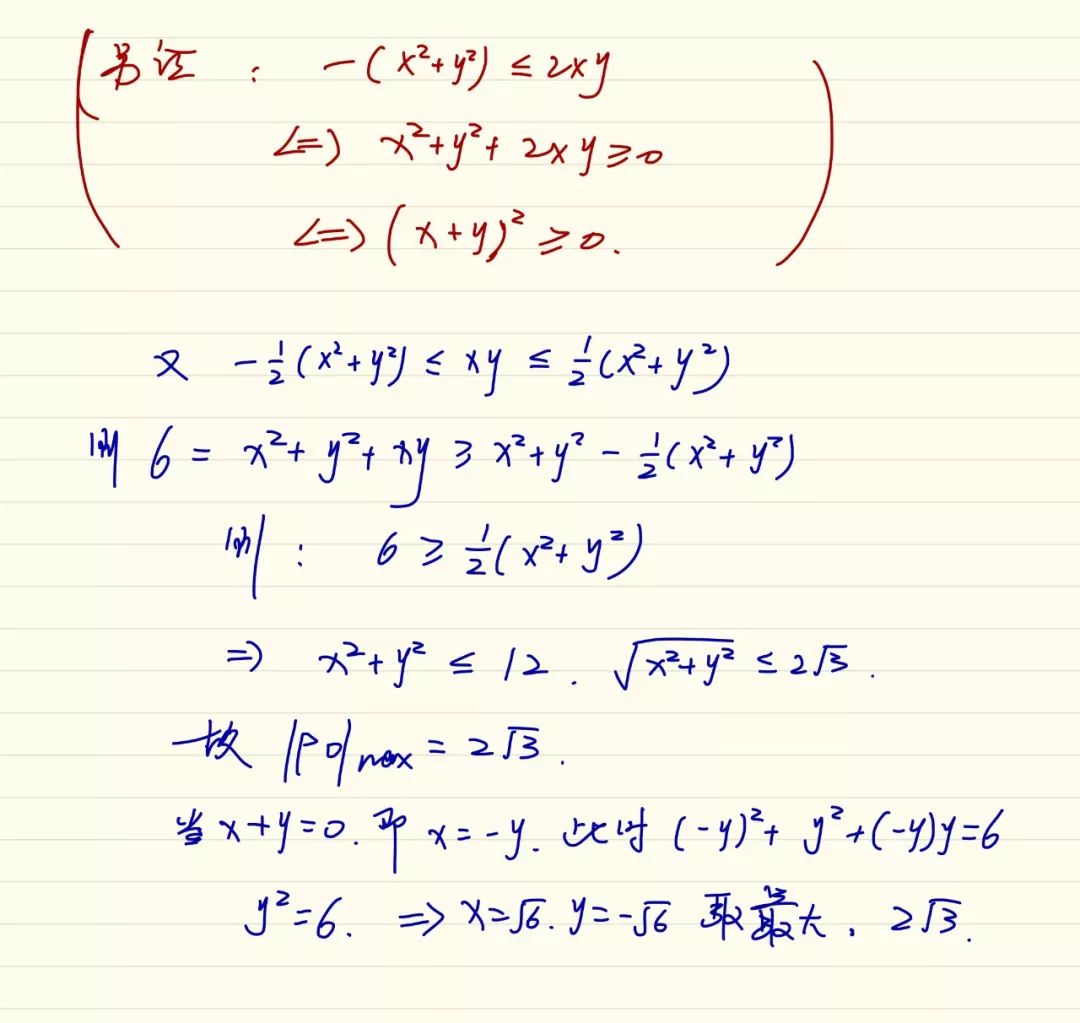 (另证: -(x²+y²) ≤ 2xy
<=> x²+y²+2xy ≥ 0
<=> (x+y)² ≥ 0.)
又 -½(x²+y²) ≤ xy ≤ ½(x²+y²)
则 6 = x²+y²+xy ≥ x²+y² - ½(x²+y²)
则: 6 ≥ ½(x²+y²)
=> x²+y² ≤ 12. √(x²+y²) ≤ 2√3.
故 |PO|max = 2√3.
当 x+y=0. 即 x=-y. 此时 (-y)²+y²+(-y)y=6
y²=6. => x=√6. y=-√6 取最大, 2√3.